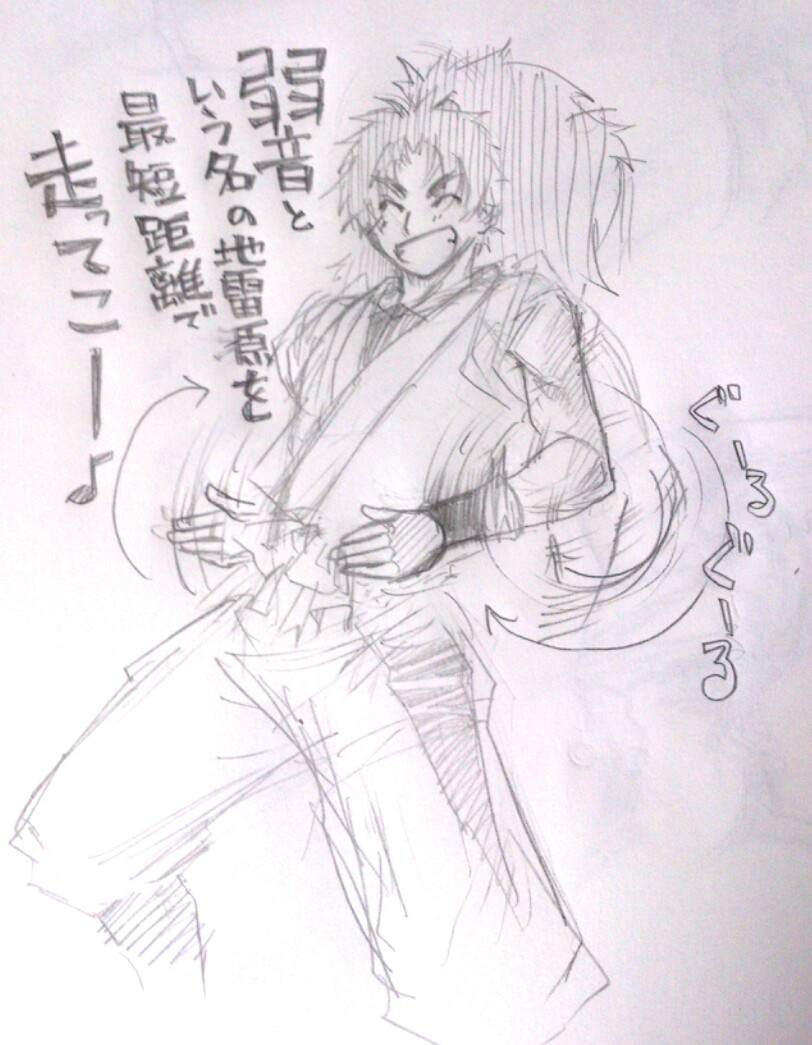 弱音と
いう名の地雷原を
最短距離で
走ってこー♪
ぐーるぐーる